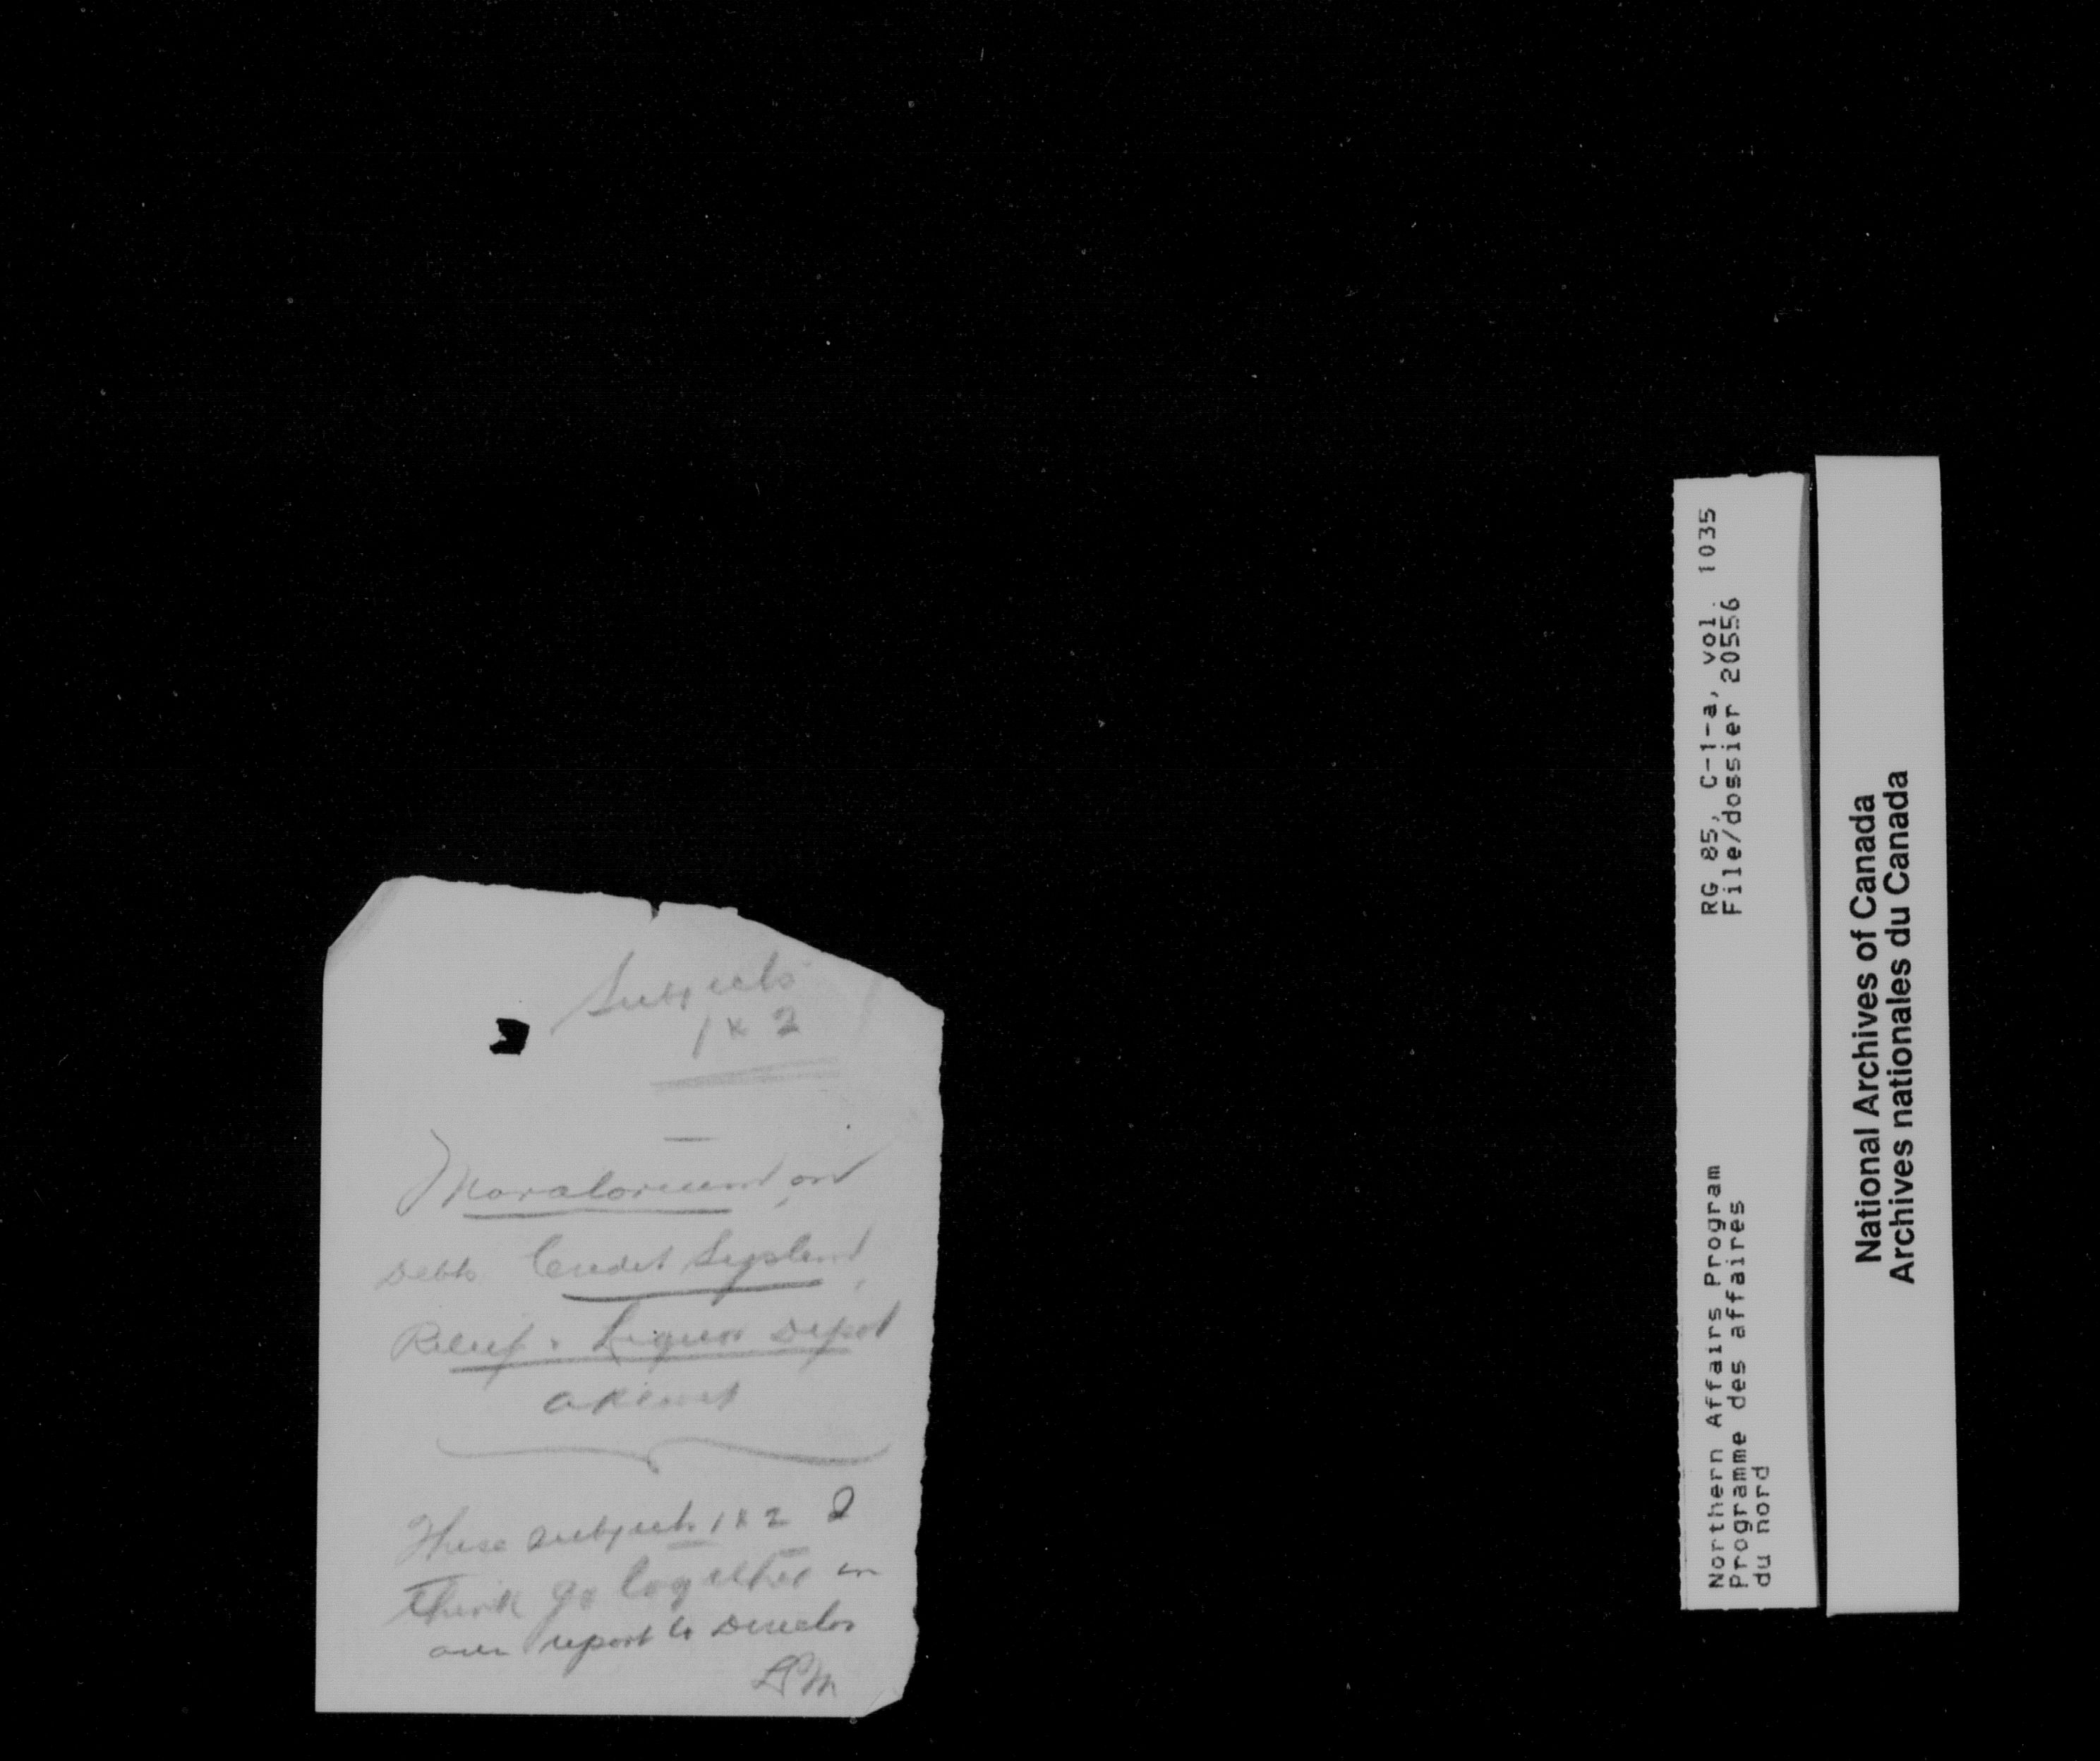 Subjects
1 & 2
Moratorium on
Debts Credit System,
Relief. Liquor Depot
These subjects 1 & 2 I
think go together in
our report to Director
RG 85, C-1-a, vol. 1035
File/dossier 20556
Northern Affairs Program
Programme des affaires
du nord
National Archives of Canada
Archives nationales du Canada